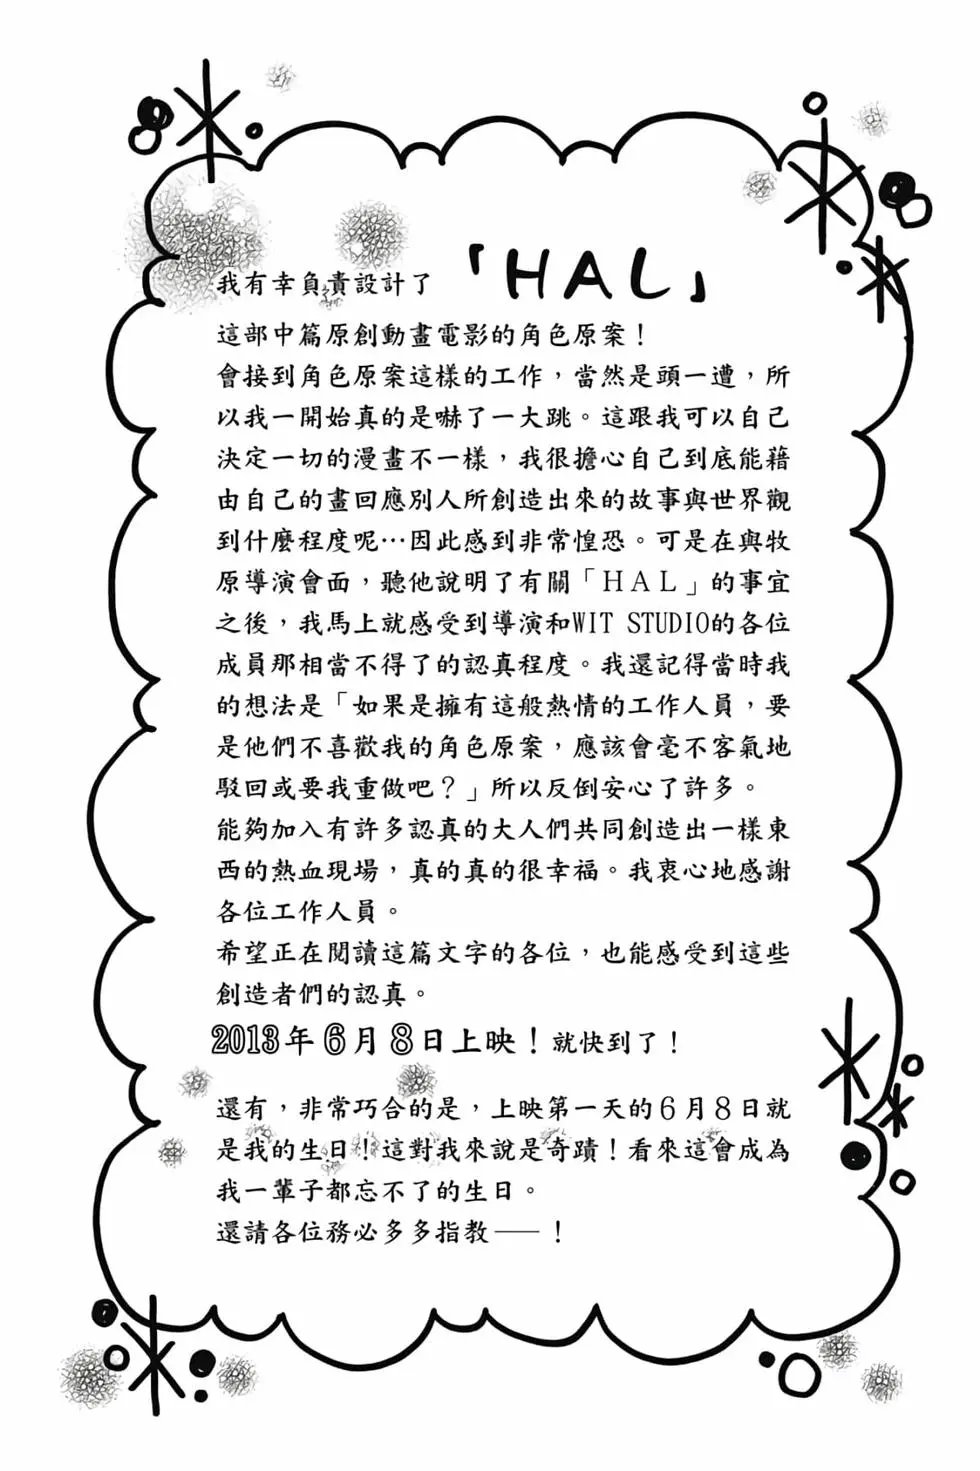 我有幸負責設計了「HAL」
這部中篇原創動畫電影的角色原案！
會接到角色原案這樣的工作，當然是頭一遭，所
以我一開始真的是嚇了一大跳。這跟我可以自己
決定一切的漫畫不一樣，我很擔心自己到底能藉
由自己的畫回應別人所創造出來的故事與世界觀
到什麼程度呢…因此感到非常惶恐。可是在與牧
原導演會面，聽他說明了有關「HAL」的事宜
之後，我馬上就感受到導演和WIT STUDIO的各位
成員那相當不得了的認真程度。我還記得當時我
的想法是「如果是擁有這般熱情的工作人員，要
是他們不喜歡我的角色原案，應該會毫不客氣地
駁回或要我重做吧？」所以反倒安心了許多。
能夠加入有許多認真的大人們共同創造出一樣東
西的熱血現場，真的真的很幸福。我衷心地感謝
各位工作人員。
希望正在閱讀這篇文字的各位，也能感受到這些
創造者們的認真。
2013年6月8日上映！就快到了！
還有，非常巧合的是，上映第一天的6月8日就
是我的生日！！這對我來說是奇蹟！看來這會成為
我一輩子都忘不了的生日。
還請各位務必多多指教——！